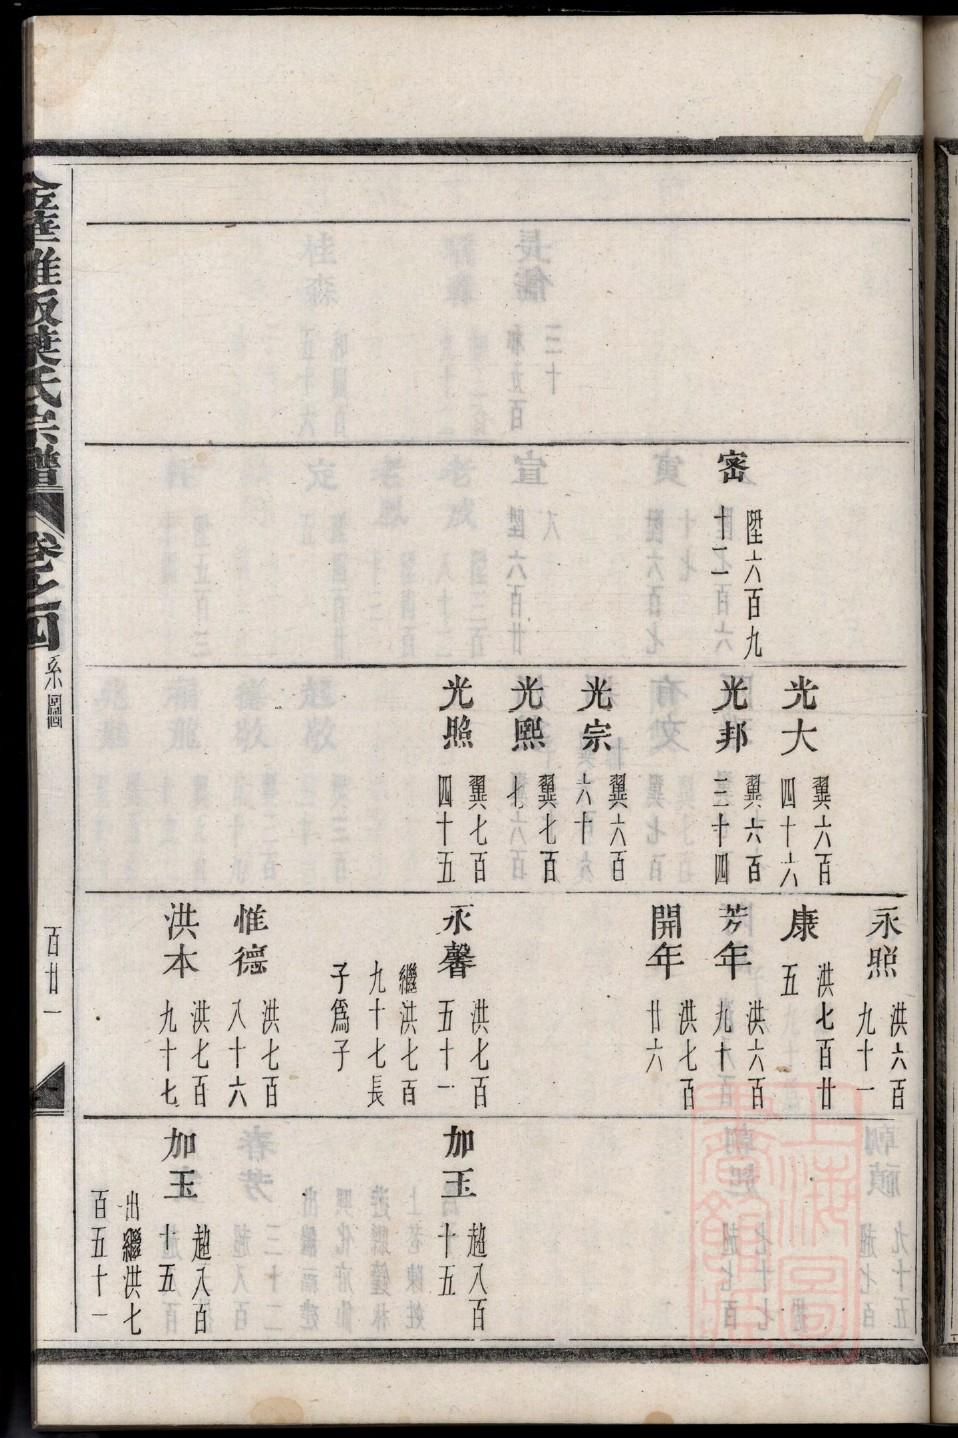 密
陞六百九
十二
光大
翼六百
四十六
光邦
翼六百
三十四
光宗
翼六百
六十
光熙
翼七百
七
光照
翼七百
四十五
永照
洪六百
九十一
康
洪七百廿
五
芳年
洪六百
九十
開年
洪七百
廿六
永馨
洪七百
五十一
繼洪七百
九十七長
子爲子
惟德
洪七百
八十六
洪本
洪七百
九十七
加玉
趙八百
十五
加玉
趙八百
十五
出繼洪七
百五十一
華雅畈葉氏宗譜
卷之四
系圖
百廿一